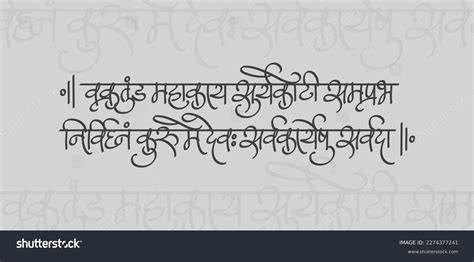 ॥ वृक्रतुंड महाकाय सुर्यकोटी समप्रभ
निर्विघ्नं कुरू मे देवः सर्वकार्येषु सर्वदा ॥
shutterstock
IMAGE ID: 2274377241
www.shutterstock.com